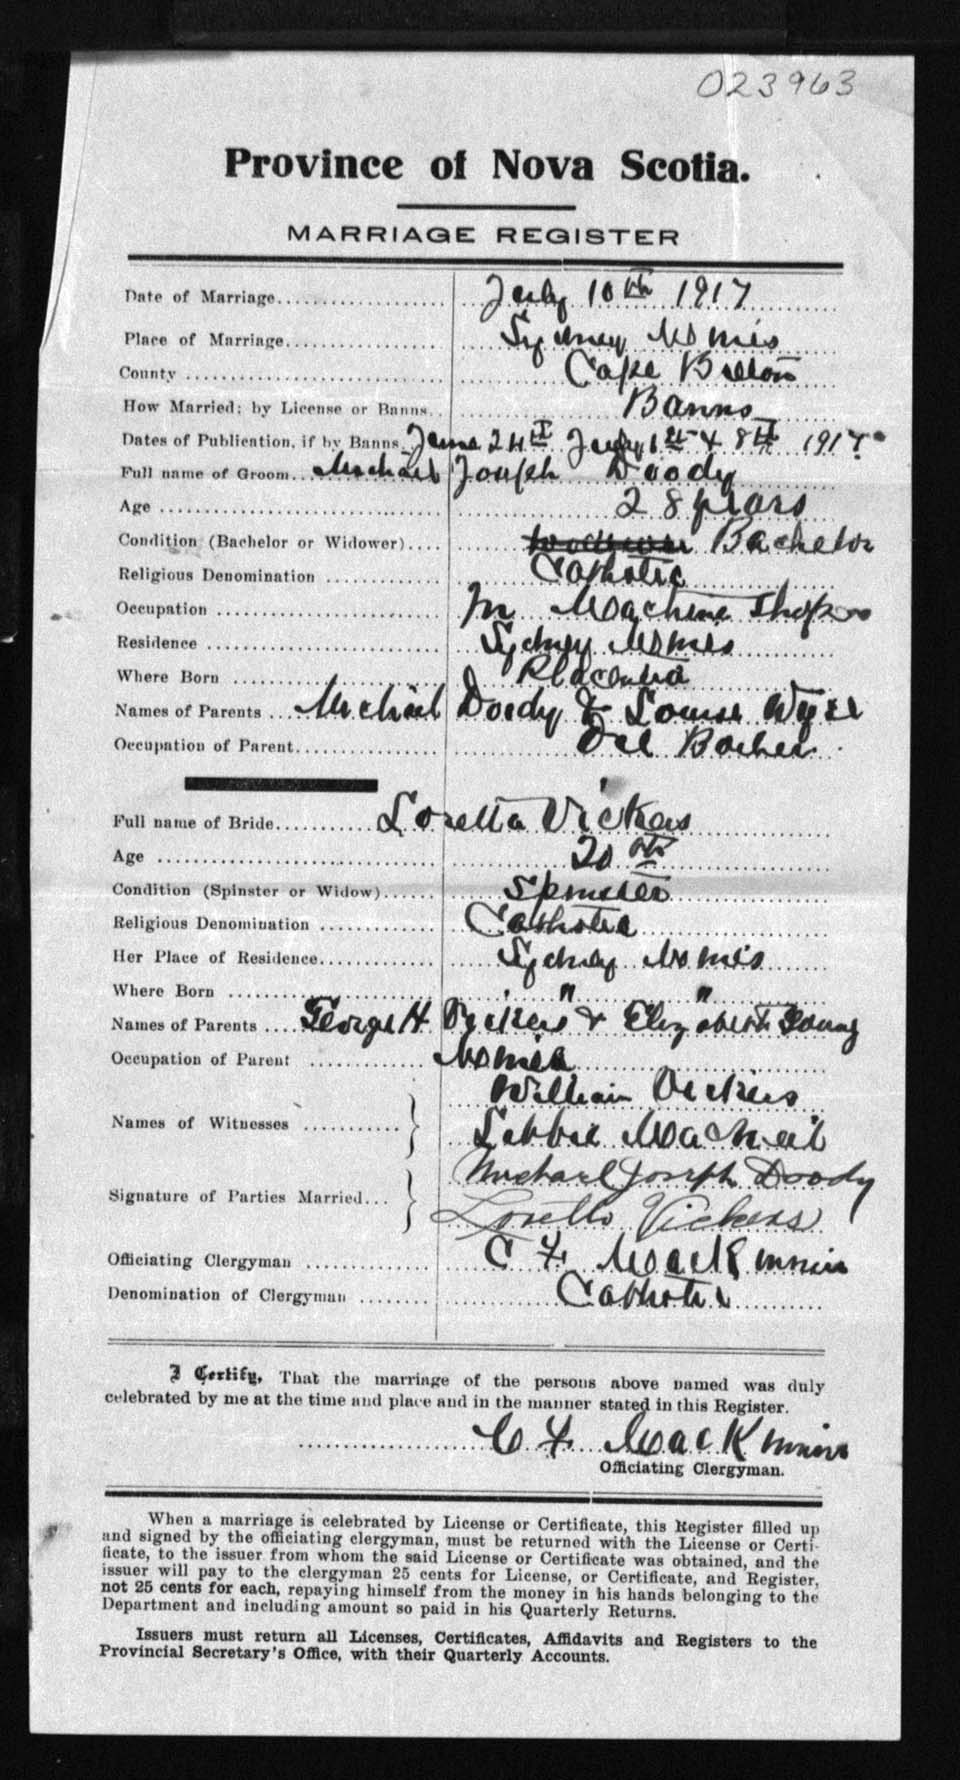 023963
Province of Nova Scotia.
MARRIAGE REGISTER
Date of Marriage July 10th 1917
Place of Marriage Sydney Mines
County Cape Breton
How Married; by License or Banns Banns
Dates of Publication, if by Banns June 24th July 1st & 8th 1917
Full name of Groom Michael Joseph Doody
Age 28 years
Condition (Bachelor or Widower) Bachelor
Religious Denomination Catholic
Occupation In Machine Shop
Residence Sydney Mines
Where Born Placentia
Names of Parents Michael Doody & Louise Wyse
Occupation of Parent
Full name of Bride Loretta Vickers
Age 20
Condition (Spinster or Widow) Spinster
Religious Denomination Catholic
Her Place of Residence Sydney Mines
Where Born " "
Names of Parents George H Vickers & Elizabeth Young
Occupation of Parent Miner
William Vickers
Names of Witnesses
Libbie MacNeil
Michael Joseph Doody
Signature of Parties Married
Loretto Vickers
Officiating Clergyman C F MacKinnon
Denomination of Clergyman Catholic
I Certify, That the marriage of the persons above named was duly
celebrated by me at the time and place and in the manner stated in this Register.
C F MacKinnon
Officiating Clergyman.
When a marriage is celebrated by License or Certificate, this Register filled up
and signed by the officiating clergyman, must be returned with the License or Certi-
ficate, to the issuer from whom the said License or Certificate was obtained, and the
issuer will pay to the clergyman 25 cents for License, or Certificate, and Register,
not 25 cents for each, repaying himself from the money in his hands belonging to the
Department and including amount so paid in his Quarterly Returns.
Issuers must return all Licenses, Certificates, Affidavits and Registers to the
Provincial Secretary's Office, with their Quarterly Accounts.